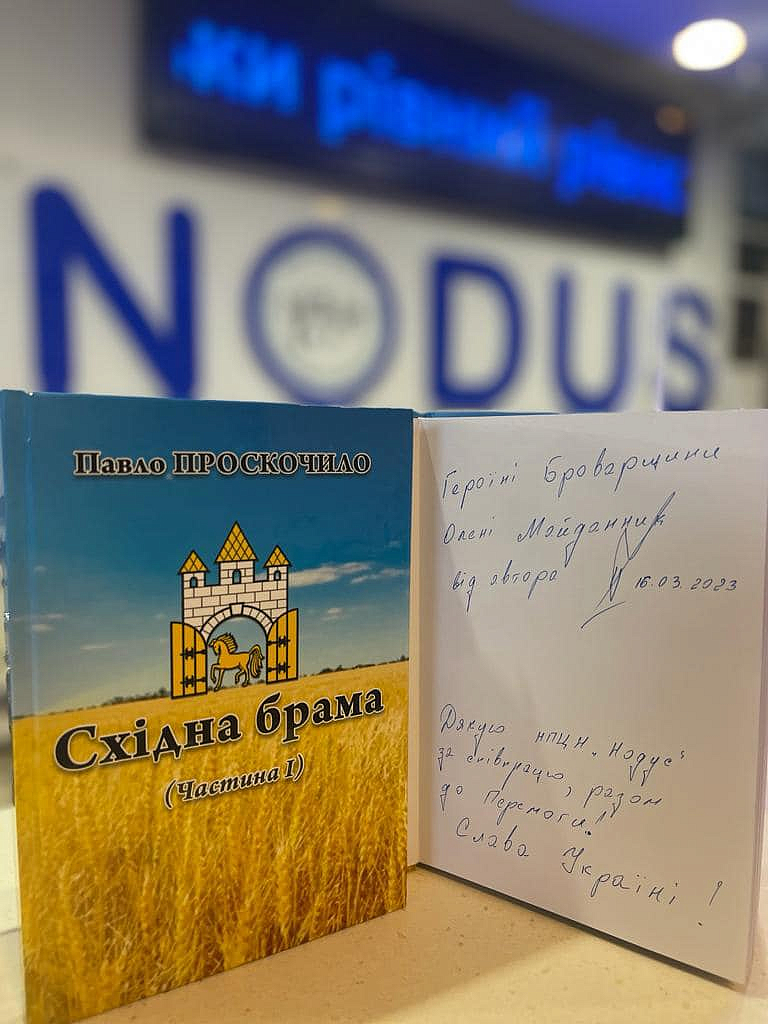 ки рівний рівно
NODUS
Павло ПРОСКОЧИЛО
Східна брама
(Частина І)
Героїні Броварщини
Олені Майданник
від автора 16.03.2023
Дякую НПЦН „Нодус“
за співпрацю, разом
до Перемоги!
Слава Україні!